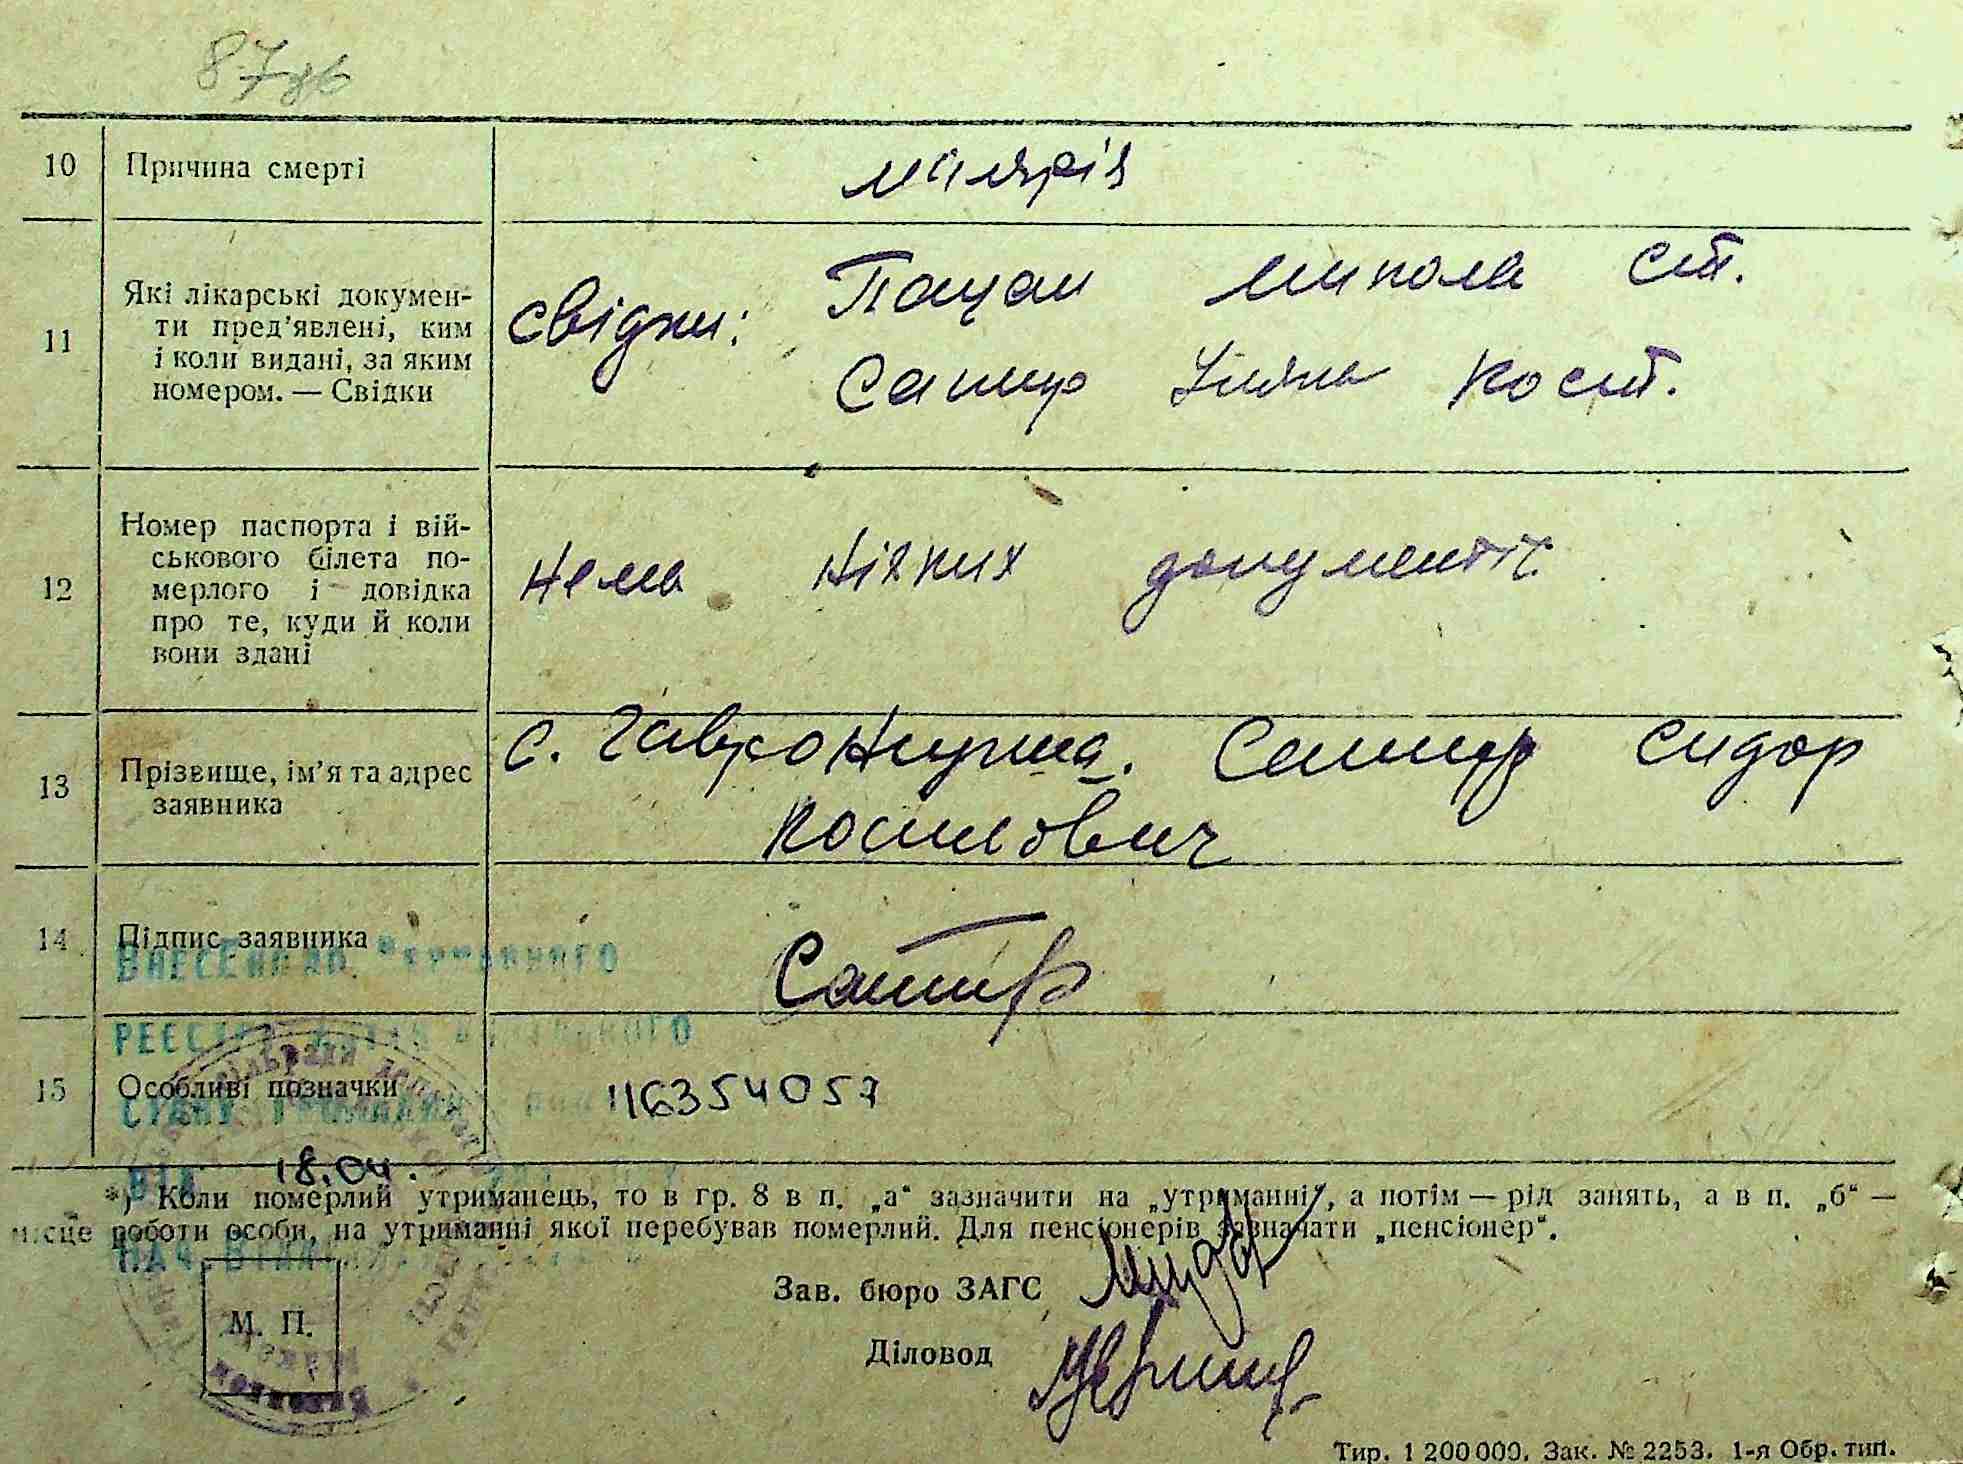 87зв
10 Причина смерті малярія
11 Які лікарські докумен-
ти пред'явлені, ким
і коли видані, за яким
номером. — Свідки
Свідки: Пацан Микола Ст.
Сапир Уляна Кост.
12 Номер паспорта і вій-
ськового білета по-
мерлого і довідка
про те, куди й коли
вони здані
Нема ніяких документів.
13 Прізвище, ім'я та адрес
заявника
с. Сидор
14 Підпис заявника
ВНЕСЕНО ДО Державного
РЕЄСТРУ
15 Особливі позначки 116354057
СТАНУ ГРОМАДЯН
ВІД 18.04.
*) Коли померлий утриманець, то в гр. 8 в п. „а“ зазначити на „утриманні“, а потім — рід занять, а в п. „б“ —
місце роботи особи, на утриманні якої перебував померлий. Для пенсіонерів зазначати „пенсіонер“.
Зав. бюро ЗАГС
М. П.
Діловод
Виконком
Тир. 1 200 000. Зак. № 2253. 1-я Обр. тип.